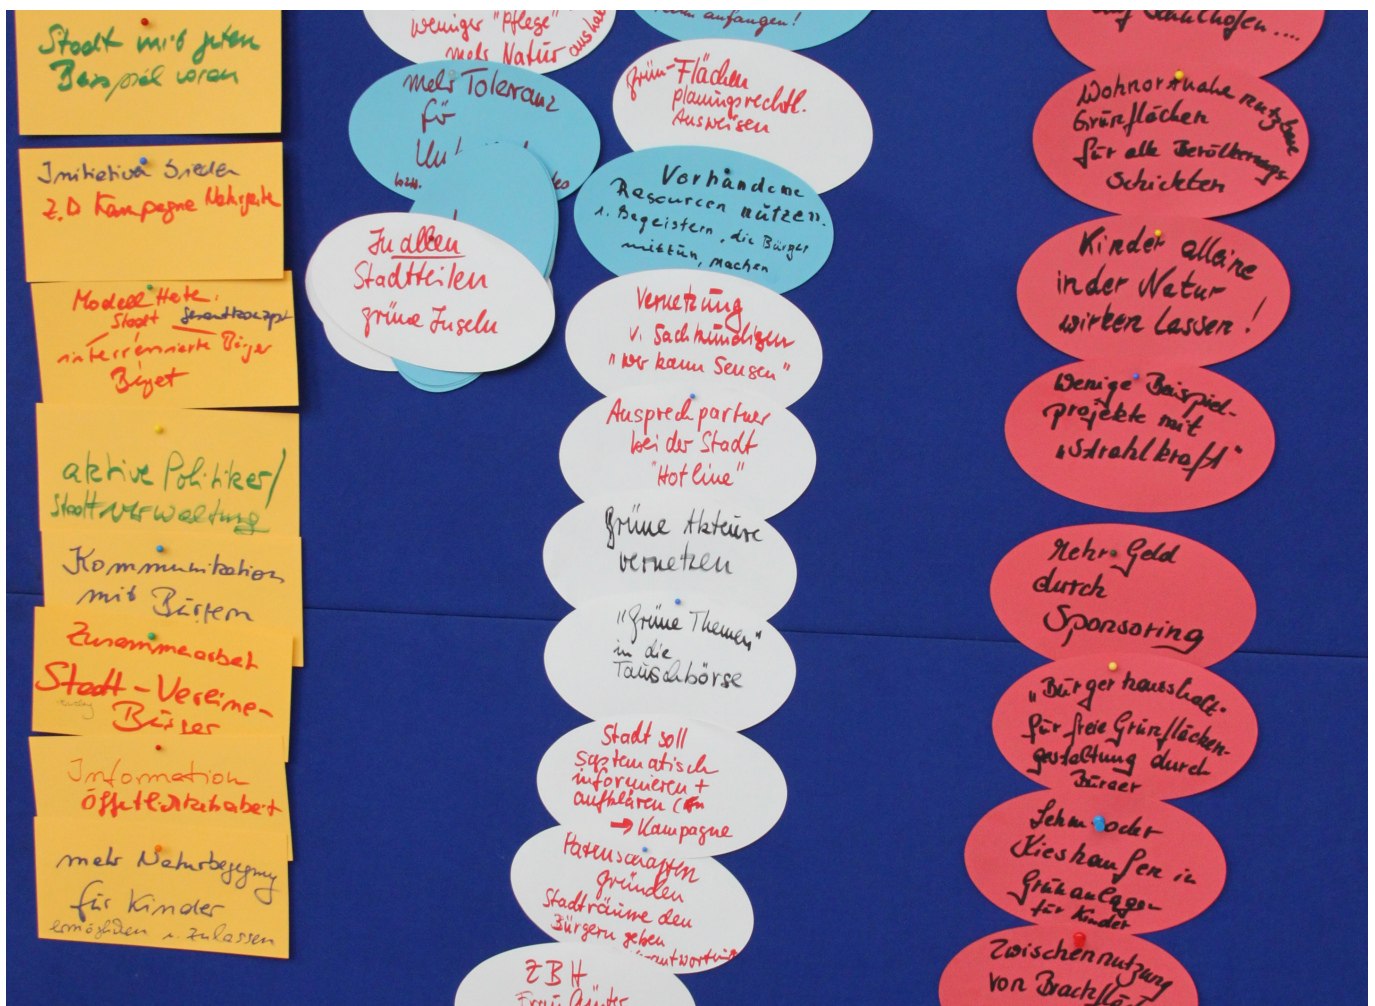 Stadt mit gutem
Beispiel voran
Initiativen
z.B Kampagne
Modell
Stadt
Gesamtkonzept
interressierte Bürger
aktive Politiker/
Stadtverwaltung
Kommunikation
mit Bürgern
Zusammenarbeit
Stadt-Vereine-
Bürger
Information
öffentlichkeitsarbeit
mehr Naturbegegnung
für Kinder
ermöglichen u. zulassen
weniger "Pflege"
mehr Natur
mehr Toleranz
für
In allen
Stadtteilen
grüne Inseln
anfangen!
grün-Flächen
planungsrechtl.
Ausweisen
Vorhandene
Resourcen nützen.
Begeistern, die Bürger
mittun, machen
Vernetzung
v. Sachkundigen
"wer kann Sensen"
Ansprechpartner
bei der Stadt
"Hotline"
Grüne Akteure
vernetzen
"Grüne Themen"
in die
Tauschbörse
Stadt soll
systematisch
informieren +
aufklären
→ Kampagne
Patenschaften
gründen
Stadträume den
Bürgern geben
ZBH
Frau Günter
auf Schulhöfen....
Wohnortnahe nutzbare
Grünflächen
für alle Bevölkerungs
schichten
Kinder alleine
in der Natur
wirken lassen!
Wenige Beispiel-
projekte mit
"Strahlkraft"
Mehr Geld
durch
Sponsoring
"Bürgerhaushalt"
für freie Grünflächen-
gestaltung durch
Bürger
Lehm oder
Kieshaufen in
Grünanlagen
für Kinder
Zwischennutzung
von